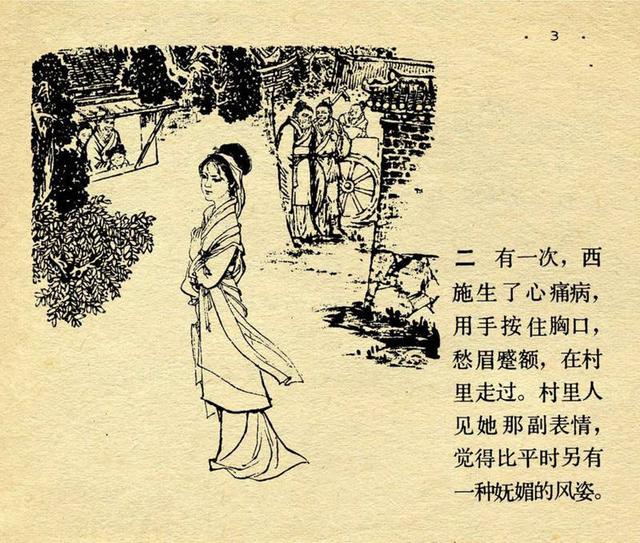 · 3 ·
二 有一次，西
施生了心痛病，
用手按住胸口，
愁眉蹙额，在村
里走过。村里人
见她那副表情，
觉得比平时另有
一种妩媚的风姿。